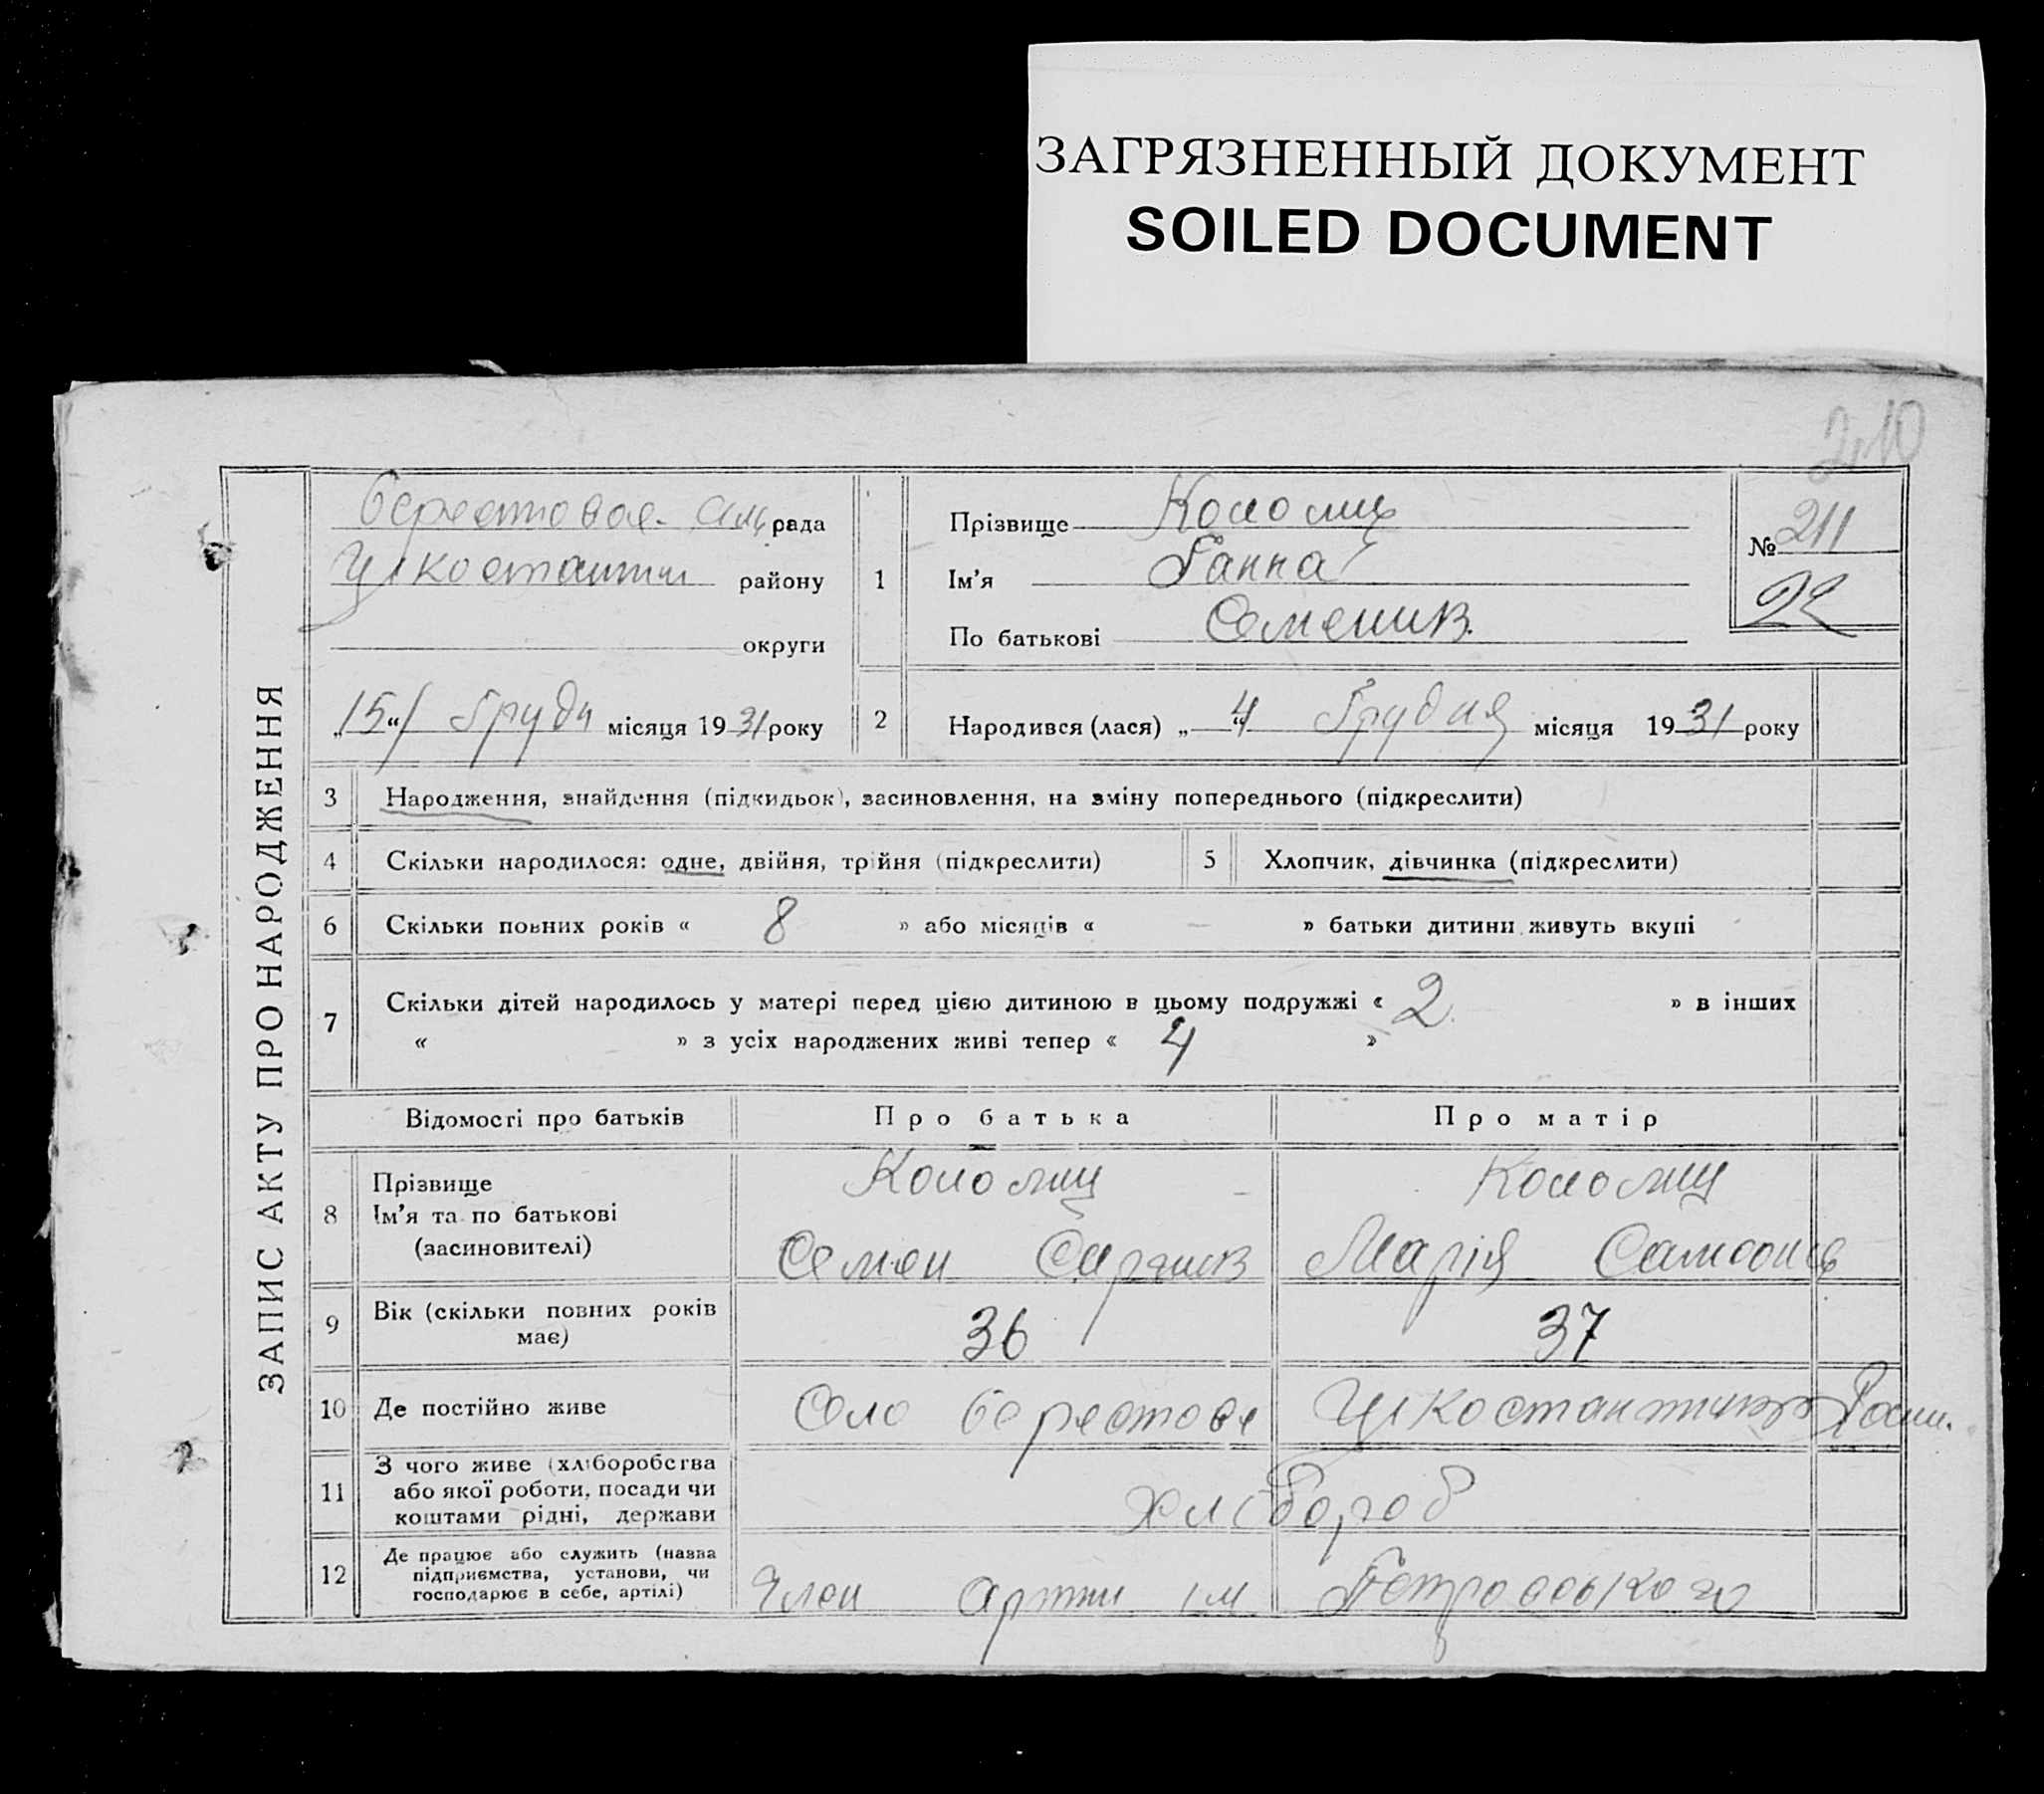 ЗАГРЯЗНЕННЫЙ ДОКУМЕНТ
SOILED DOCUMENT
210
ЗАПИС АКТУ ПРО НАРОДЖЕННЯ
рада
району
округи
„15“ Грудн місяця 1931 року
1
Прізвище Коломиц
Ім’я Ганна
По батькові Семенив.
№ 211
22
2 Народився (лася) „4“ Грудня місяця 1931 року
3 Народження, знайдення (підкидьок), засиновлення, на зміну попереднього (підкреслити)
4 Скільки народилося: одне, двійня, трійня (підкреслити)
5 Хлопчик, дівчинка (підкреслити)
6 Скільки повних років « 8 » або місяців « – » батьки дитини живуть вкупі
7 Скільки дітей народилось у матері перед цією дитиною в цьому подружжі « 2 » в інших
« » з усіх народжених живі тепер « 4 »
Відомості про батьків Про батька Про матір
8 Прізвище
Ім’я та по батькові
(засиновителі)
Коломиц
Семен
Коломиц
Марія Самсонів
9 Вік (скільки повних років
має)
36 37
10 Де постійно живе Село Берестове
11 З чого живе (хліборобства
або якої роботи, посади чи
коштами рідні, держави
хлібороб
12 Де працює або служить (назва
підприємства, установи, чи
господарює в себе, артілі)
Член Артіли ім Петровського